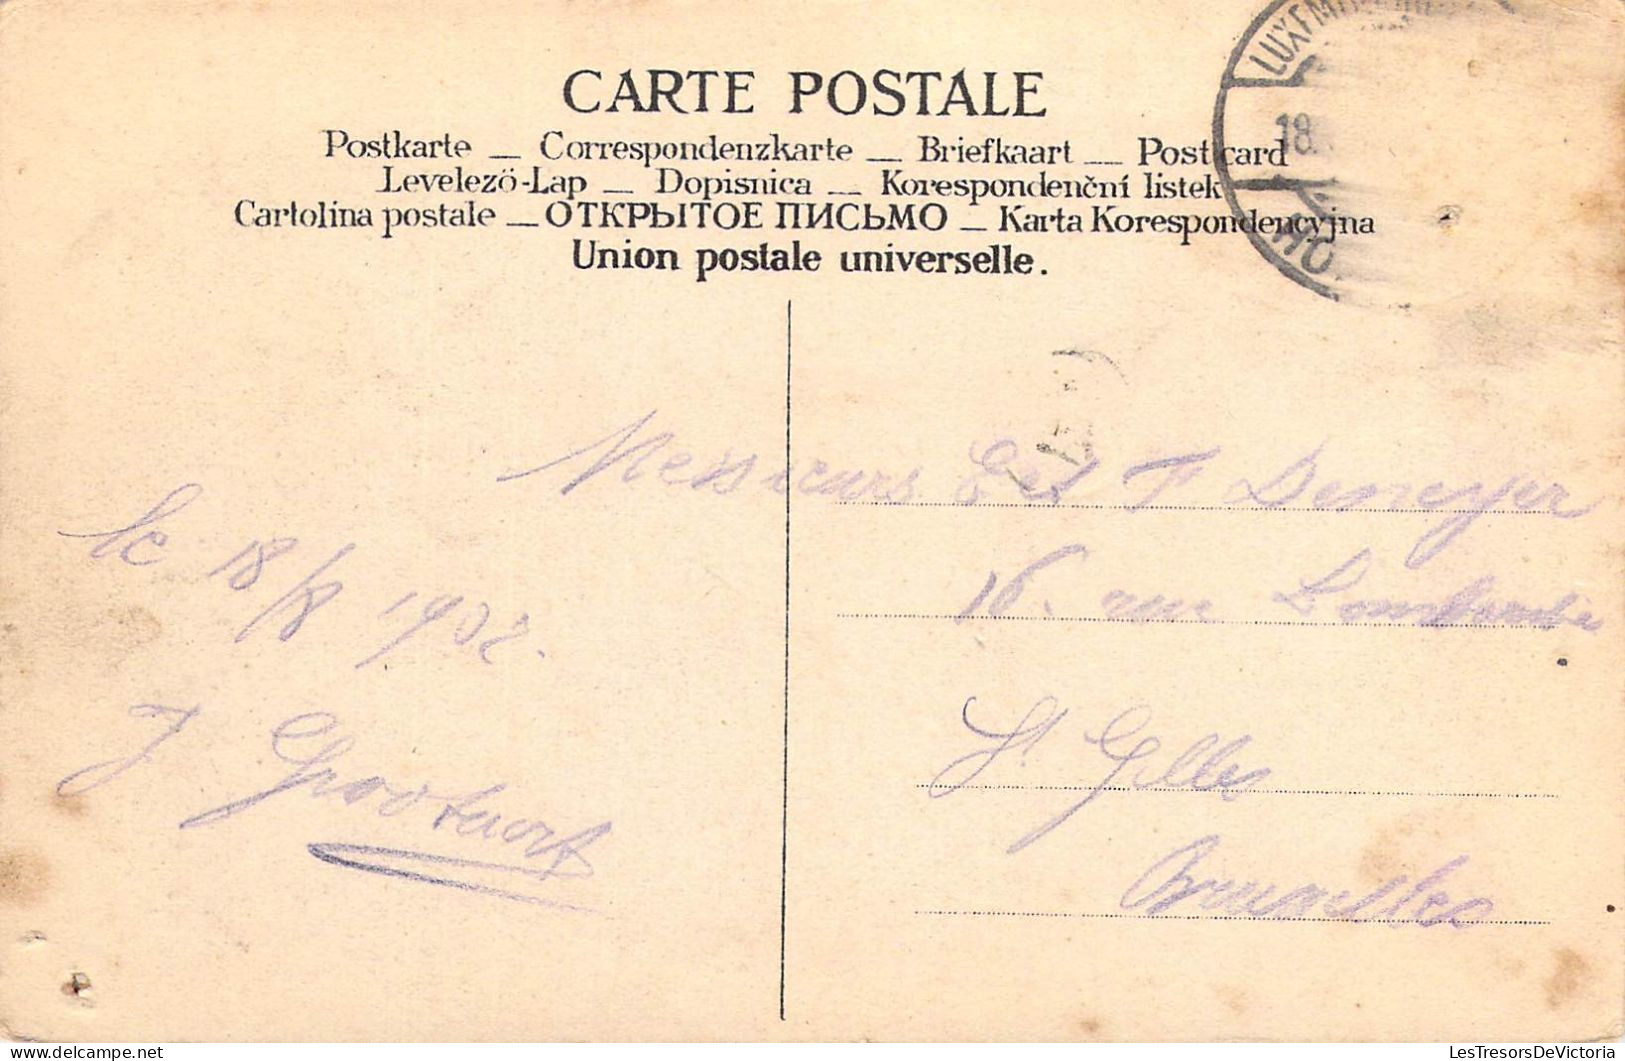 CARTE POSTALE
Postkarte — Correspondenzkarte — Briefkaart — Postcard
Levelezö-Lap — Dopisnica — Korespondenční listek
Cartolina postale — ОТКРЫТОЕ ПИСЬМО — Karta Korespondencyjna
Union postale universelle.
18.
Messieurs Et F Deneyer
16. rue
St Gilles
Bruxelles
le 18/8 1902.
J Grootaert
LesTresorsDeVictoria